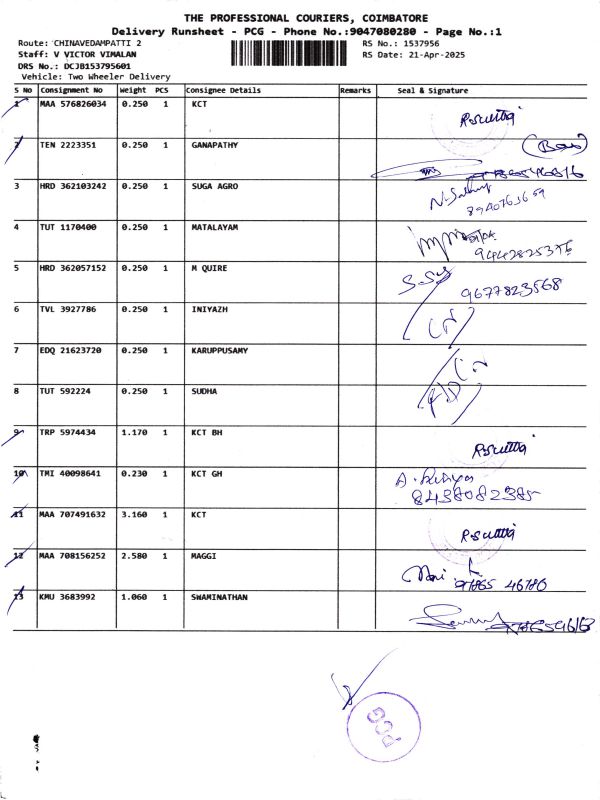 THE PROFESSIONAL COURIERS, COIMBATORE
Delivery Runsheet - PCG - Phone No.:9047080280 - Page No.:1
Route: CHINAVEDAMPATTI 2
RS No.: 1537956
Staff: V VICTOR VIMALAN
RS Date: 21-Apr-2025
DRS No.: DCJB153795601
Vehicle: Two Wheeler Delivery
S No Consignment No Weight PCS Consignee Details Remarks Seal & Signature
1 MAA 576826034 0.250 1 KCT
2 TEN 2223351 0.250 1 GANAPATHY
3 HRD 362103242 0.250 1 SUGA AGRO
4 TUT 1170400 0.250 1 MATALAYAM
9442825376
5 HRD 362057152 0.250 1 M QUIRE
9677823568
6 TVL 3927786 0.250 1 INIYAZH
7 EDQ 21623720 0.250 1 KARUPPUSAMY
8 TUT 592224 0.250 1 SUDHA
9 TRP 5974434 1.170 1 KCT BH
10 TMI 40098641 0.230 1 KCT GH
8438082385
11 MAA 707491632 3.160 1 KCT
12 MAA 708156252 2.580 1 MAGGI
97865 46780
13 KMU 3683992 1.060 1 SWAMINATHAN
PCG